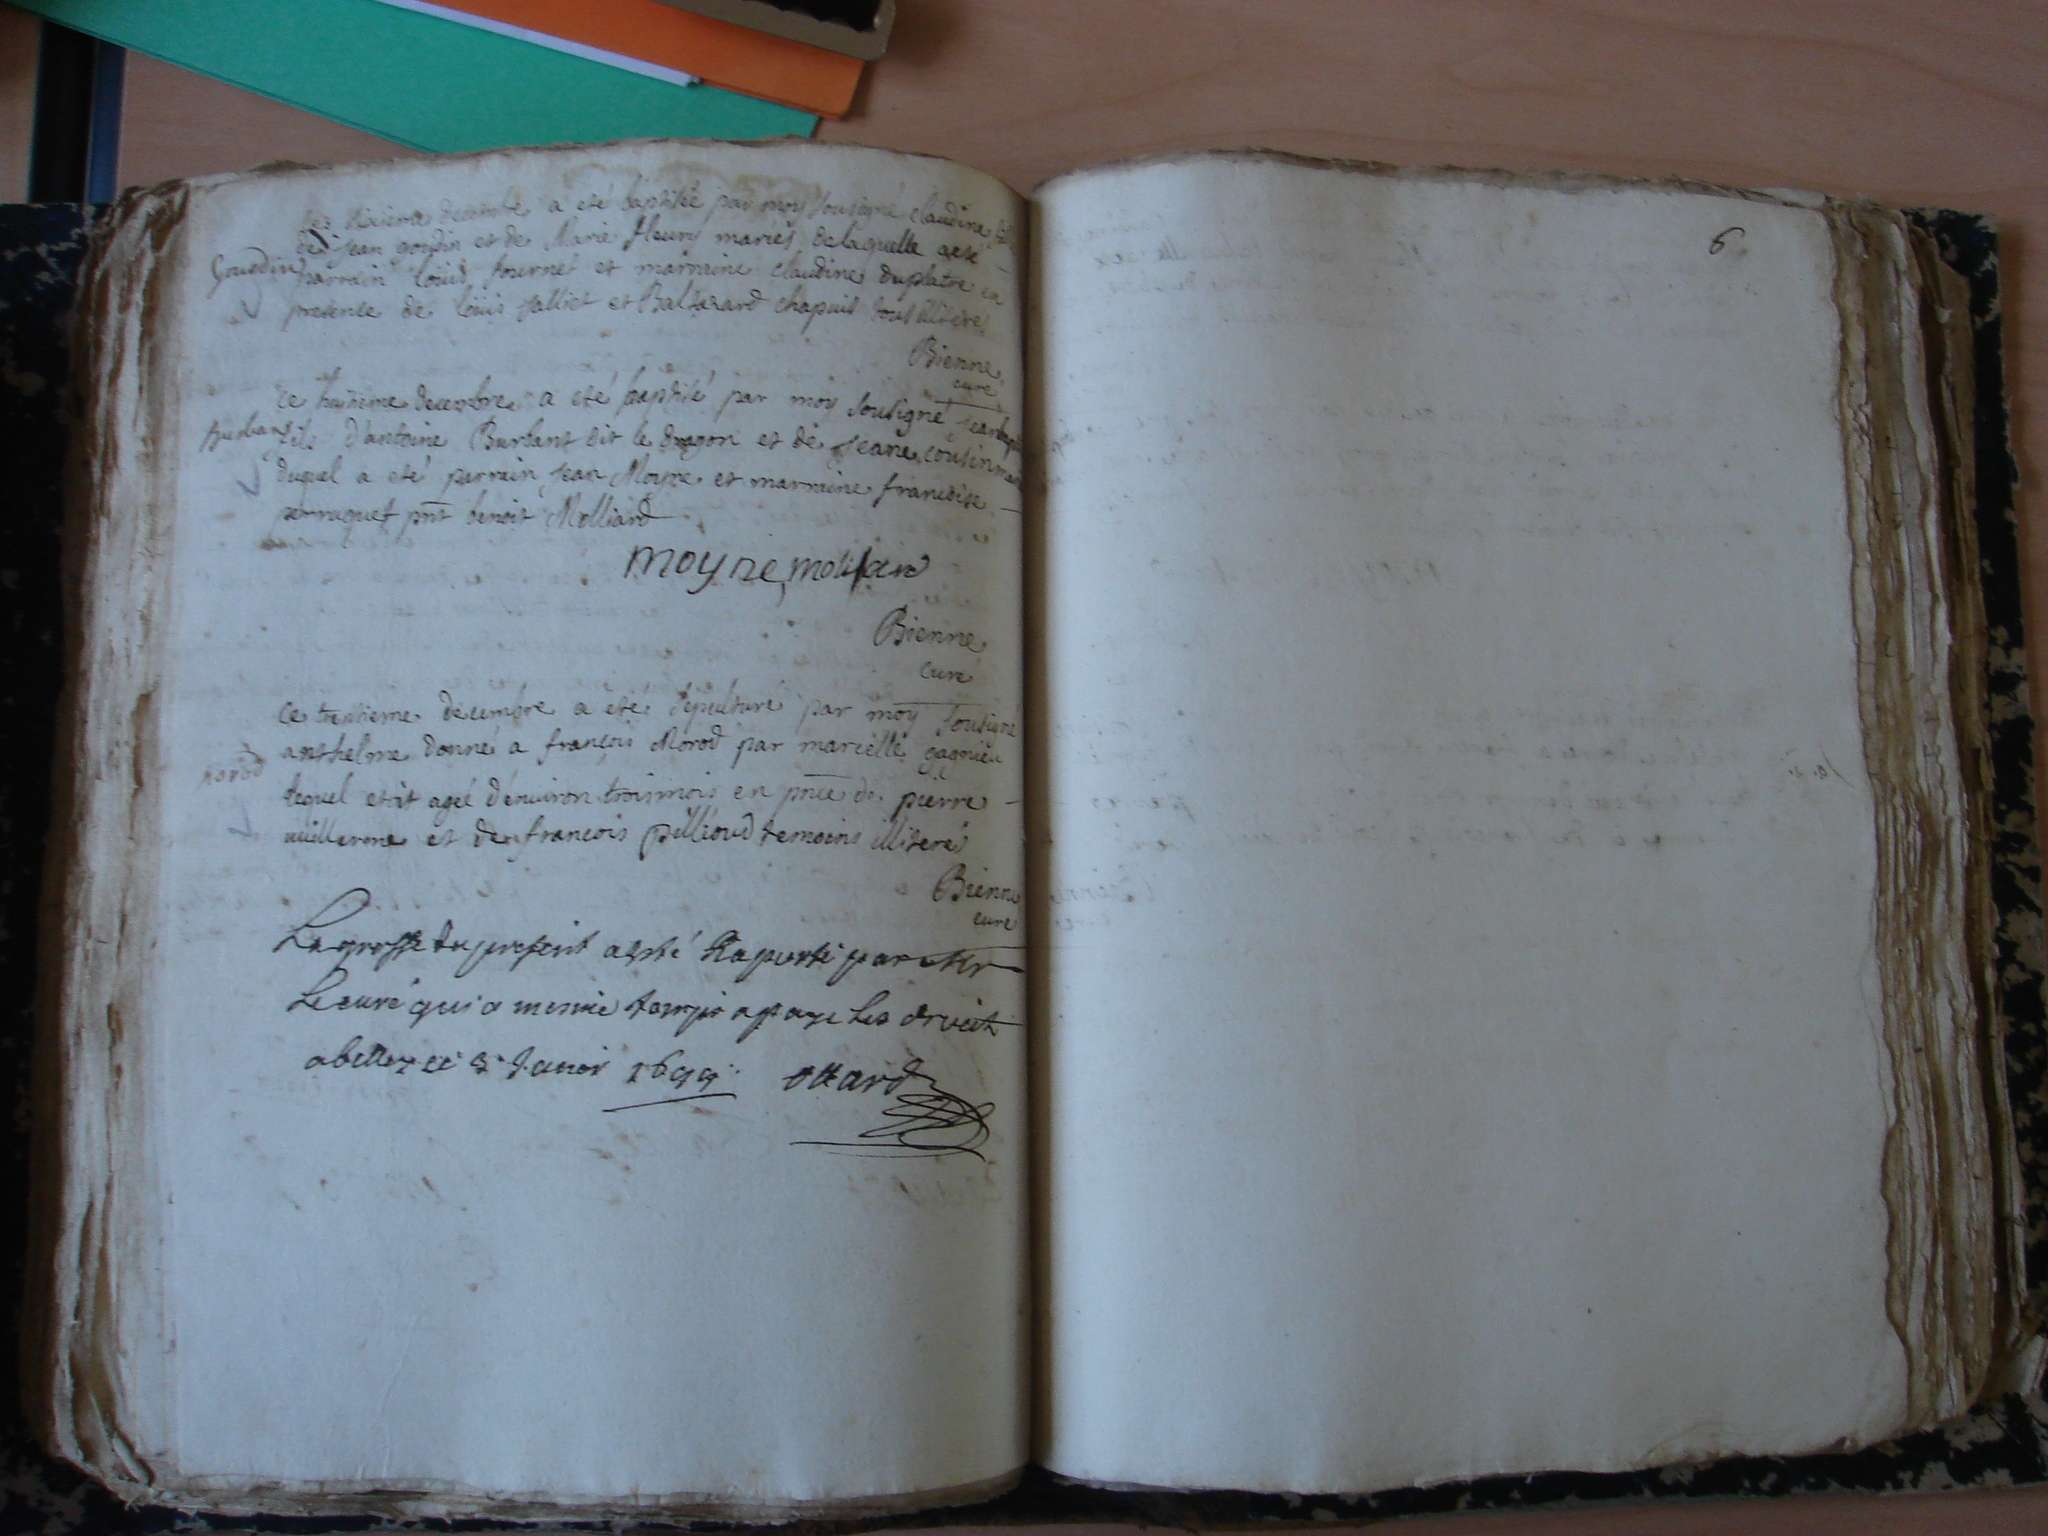 decembre a eté baptisée par moy sousigné claudine
de Jean goudin et de Marie fleury mariés delaquelle a esté
Goudin
parrain Louis fournet et marraine claudine duplatre en
presence de Louis Jalliet et Baltazard Chapuis tous illiteres
Bienne
curé
Ce huitieme decembre a eté baptisé par moy sousigné
Burban
fils d'antoine Burbant dit le dragon et de Jeane cousin
duquel a eté parrain Jean Moyne et marraine francoise
perraquet pnt benoit Molliard
moyne
Bienne
curé
Ce trentieme decembre a eté sepulturé par moy sousigné
anthelme donné a françois Morod par marcelle gagnieu
morod
lequel etoit agée d'environ trois mois en pnce de pierre
uuillerme et de francois pillioud temoins illiterés
Bienne
curé
La grosse du present a esté raporté par Mr
Le curé qui a mesme temps a paye les droits
a belley ce Janvier 1699. ottard
6